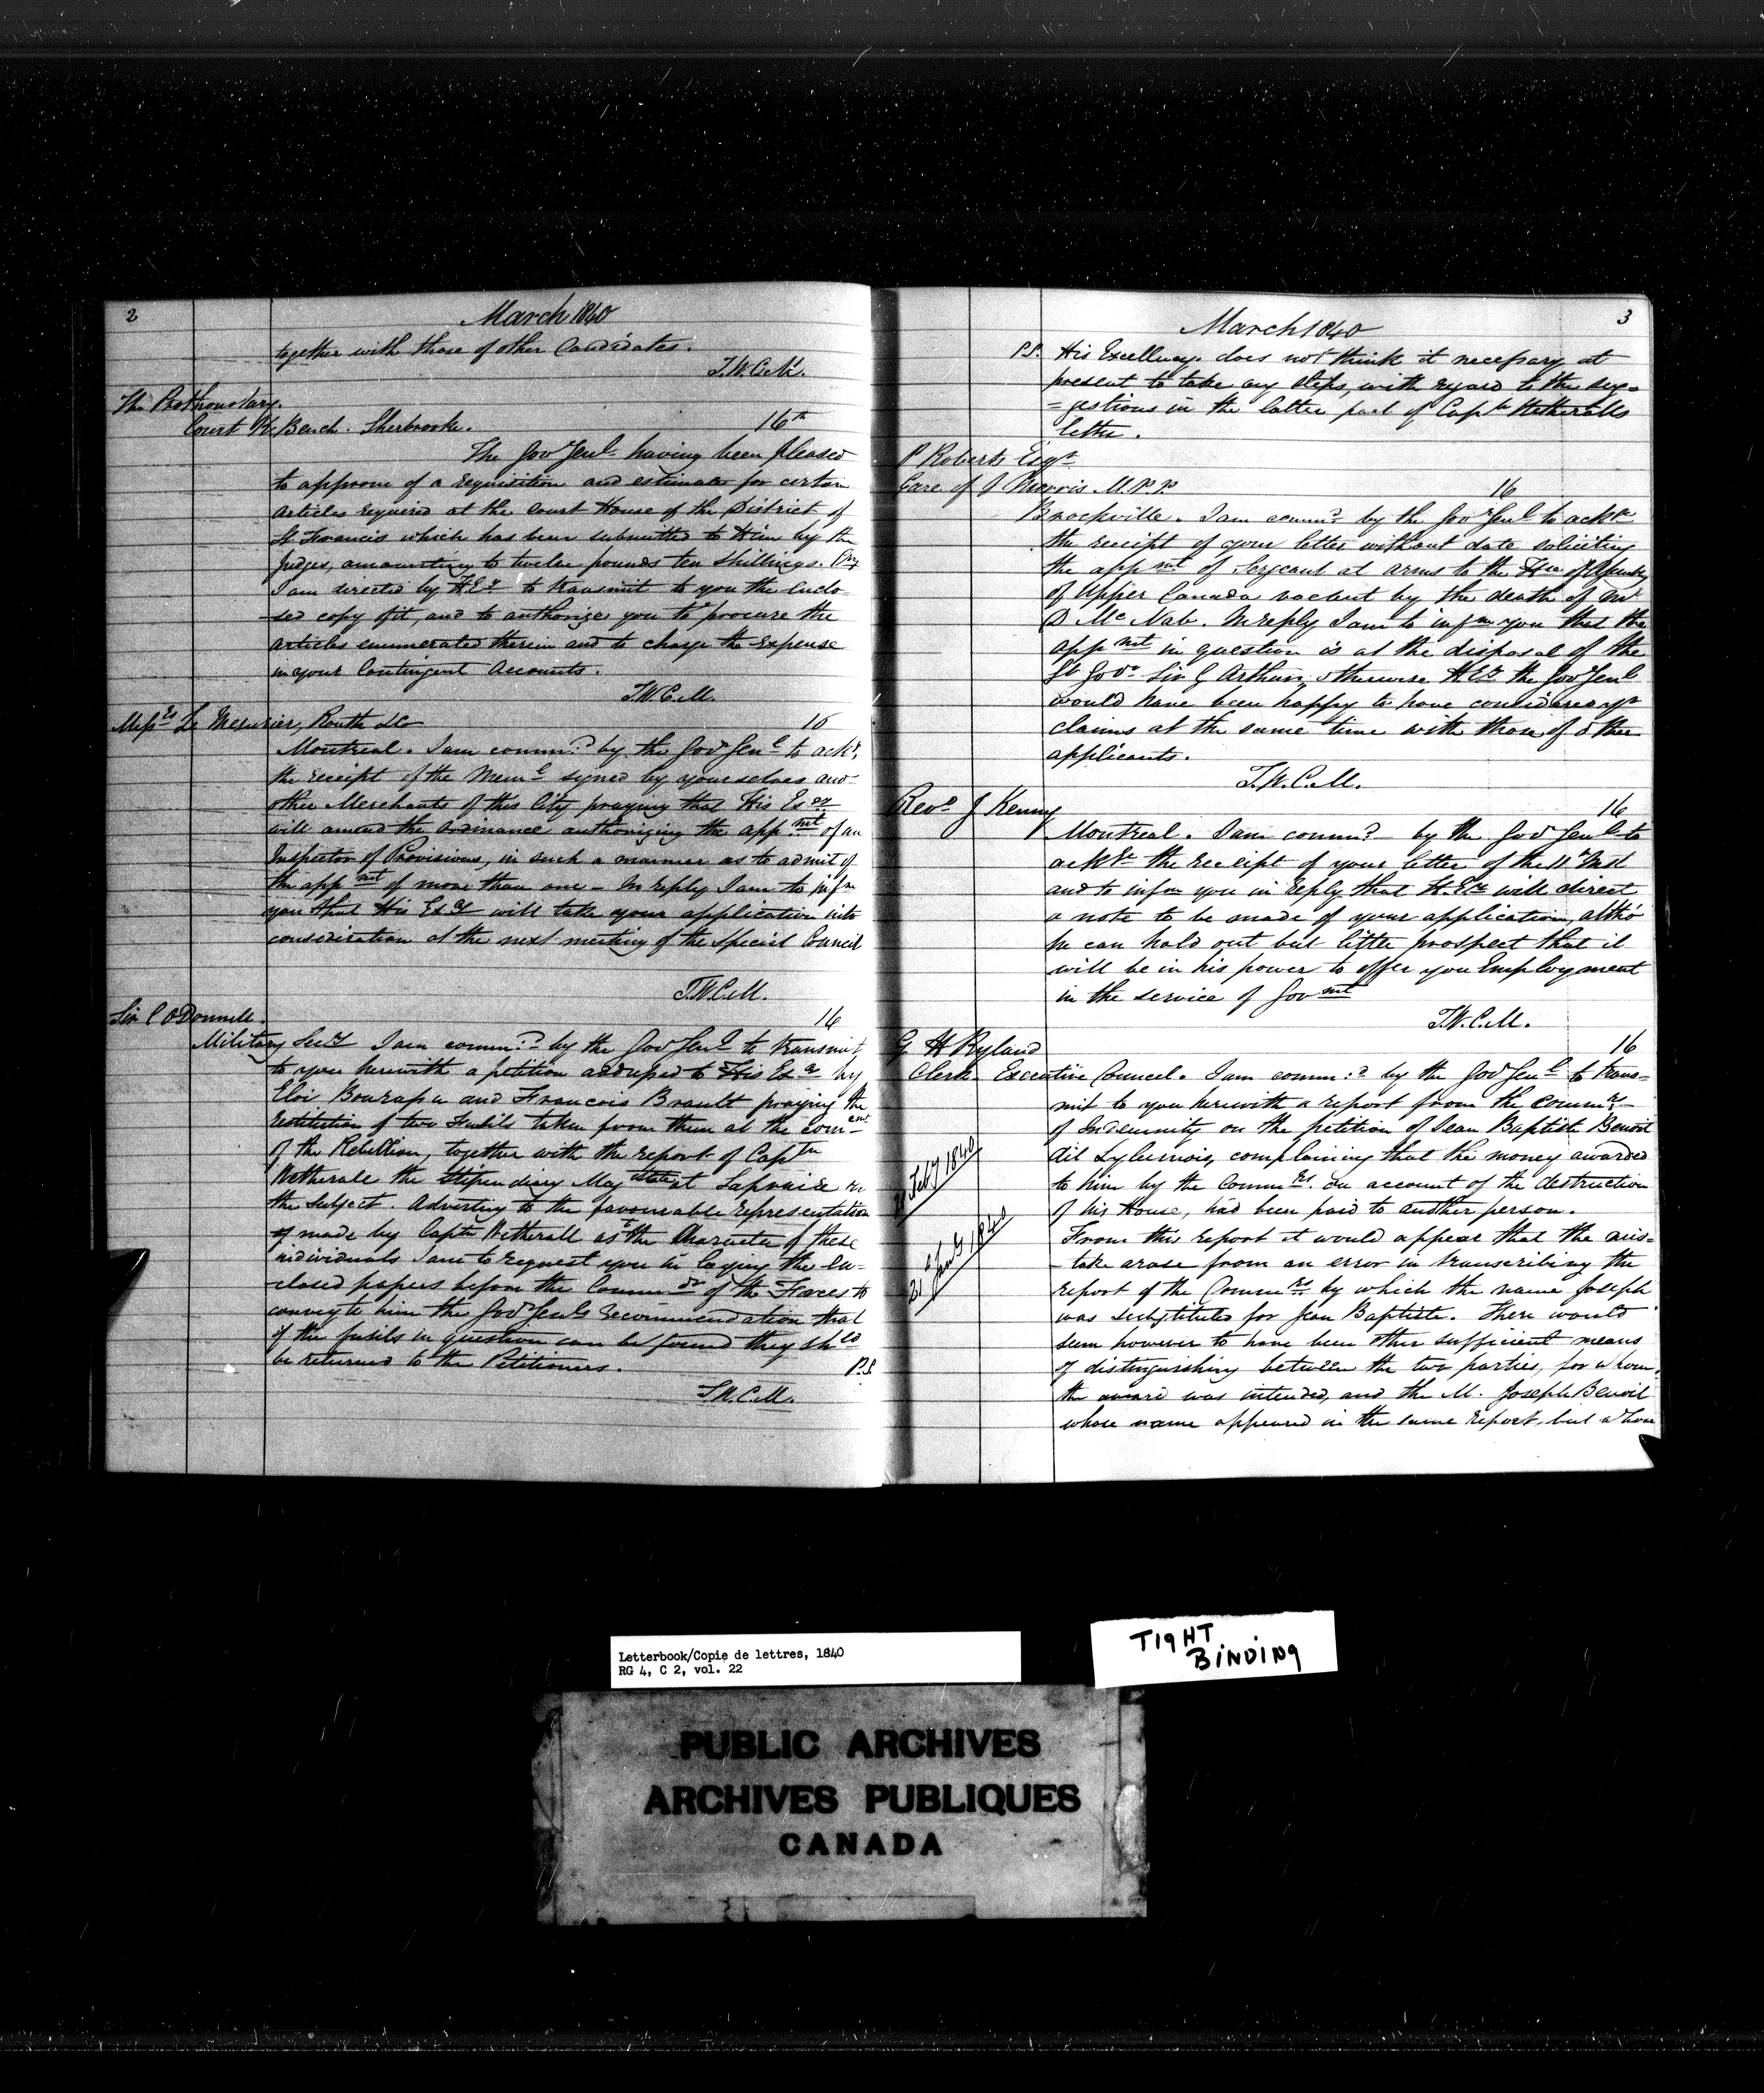 2
March 1840
together with those of other Candidates.
T.W.C.M.
The Prothonotary
Court K. Bench. Sherbrooke. 16th
The Gov Genl. having been pleased
to approve of a requisition and estimate for certain
articles required at the Court House of the District of
St Francis which has been submitted to Him by the
Judges, amounting to twelve pounds ten shillings.
I am directed by H. Ey to transmit to you the enclo-
sed copy of it, and to authorize you to procure the
articles enumerated therein and to charge the Expense
in your Contingent Accounts.
T.W.C.M.
Messrs Le Mesurier, Routh &c 16
Montreal. I am commd. by the Gov Genl to ackr.
the receipt of the Meml signed by yourselves and
other Merchants of this City praying that His Exy
will amend the Ordinance authorizing the appmt of an
Inspector of Provisions, in such a manner as to admit of
the appmt of more than one – In reply I am to infm
you that His Exy will take your application into
consideration at the next meeting of the Special Council
T.W.C.M.
Sir C O'Donnell 16
Military Secy I am commd. by the Gov Genl to transmit
to you herewith a petition addressed to His Exy by
Eloi Bourassa and Francois Brault praying the
restitution of two Fusils taken from them at the comt
of the Rebellion, together with the report of Captn
Wetherall the Stipendiary Magstate at Laprairie on
the subject. Adverting to the favourable representation
made by Captn Wetherall as to the Character of these
individuals I am to request you in laying the En-
closed papers before the Commdr of the Forces to
convey to him the Gov Genls recommendation that
if the fusils in question can be found they shld
be returned to the Petitioners. P.S.
T.W.C.M.
3
March 1840
P.S. His Excellency does not think it necessary at
present to take any steps, with regard to the sug=
=gestions in the latter part of Captn Wetheralls
letter.
P Roberts Esqr
Care of J Morris M.P.P. 16
Brockville. I am commd by the Gov Genl to ackr
the receipt of your letter without date soliciting
the appmt of Sergeant at arms to the Hse of Assembly
of Upper Canada vacant by the death of Mr
D McNab. In reply I am to infm you that the
appmt in question is at the disposal of the
Lt Govr Sir G Arthur, otherwise H. Ey the Gov Genl
would have been happy to have considered yr
claims at the same time with those of other
applicants.
T.W.C.M.
Revd J Kenny 16
Montreal. I am commd by the Gov Genl to
ackr the receipt of your letter of the 11th Inst
and to infm you in reply that H. Ey will direct
a note to be made of your application, altho'
he can hold out but little prospect that it
will be in his power to offer you Employment
in the service of Govmt
T.W.C.M.
G H Ryland 16
Clerk Executive Council. I am commd. by the Gov Genl to trans-
mit to you herewith a report from the Commrs
of Indemnity on the petition of Jean Baptiste Benoit
dit complaining that the money awarded
to him by the Commrs. on account of the destruction
of his House, had been paid to another person.
Feby 1840
From this report it would appear that the mis=
take arose from an error in transcribing the
report of the Commrs by which the name Joseph
was substituted for Jean Baptiste. There would
21 1840
seem however to have been other sufficient means
of distinguishing between the two parties, for whom
the award was intended, and the M. Joseph Benoit
whose name appeared in the same report, but whom
Letterbook/Copie de lettres, 1840
RG 4, C 2, vol. 22
TIGHT
BINDING
PUBLIC ARCHIVES
ARCHIVES PUBLIQUES
CANADA